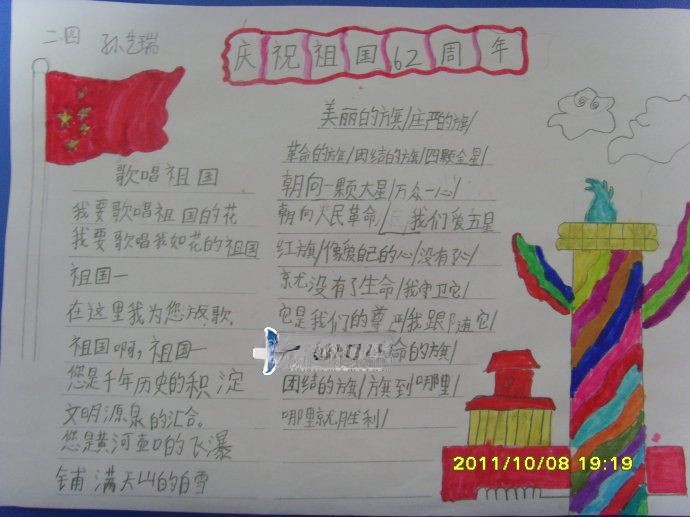 二.四 孙艺瑞
庆祝祖国62周年
歌唱祖国
我要歌唱祖国的花
我要歌唱我如花的祖国
祖国一
在这里我为您放歌.
祖国啊,祖国一
您是千年历史的积淀
文明源泉的汇合。
您是黄河壶口的飞瀑
铺满天山的白雪
美丽的旗/庄严的旗/
革命的旗/团结的旗/四颗金星/
朝向一颗大星/万众一心/
朝向人民革命/ 我们爱五星
红旗/像爱自己的心/没有了心/
就没有了生命/我守卫它/
它是我们的尊严/我跟随它/
命的旗/
团结的旗/旗到哪里/
哪里就胜利/
2011/10/08 19:19